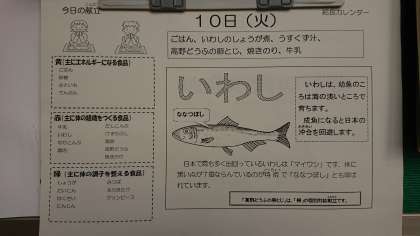 今日の献立
給食カレンダー
10日（火）
ごはん、いわしのしょうが煮、うすくず汁、
高野どうふの卵とじ、焼きのり、牛乳
黄（主にエネルギーになる食品）
ごはん
砂糖
でんぷん
赤（主に体の組織をつくる食品）
牛乳
いわし
鶏肉
緑（主に体の調子を整える食品）
しょうが
だいこん
はくさい
にんじん
グリンピース
いわし
ななつぼし
いわしは、幼魚のこ
ろは海の浅いところで
育ちます。
成魚になると日本の
沖合を回遊します。
日本で最も多く出回っているいわしは「マイワシ」です。体に
黒い点が7個ならんでいるのが特徴で「ななつぼし」とも呼ば
れています。